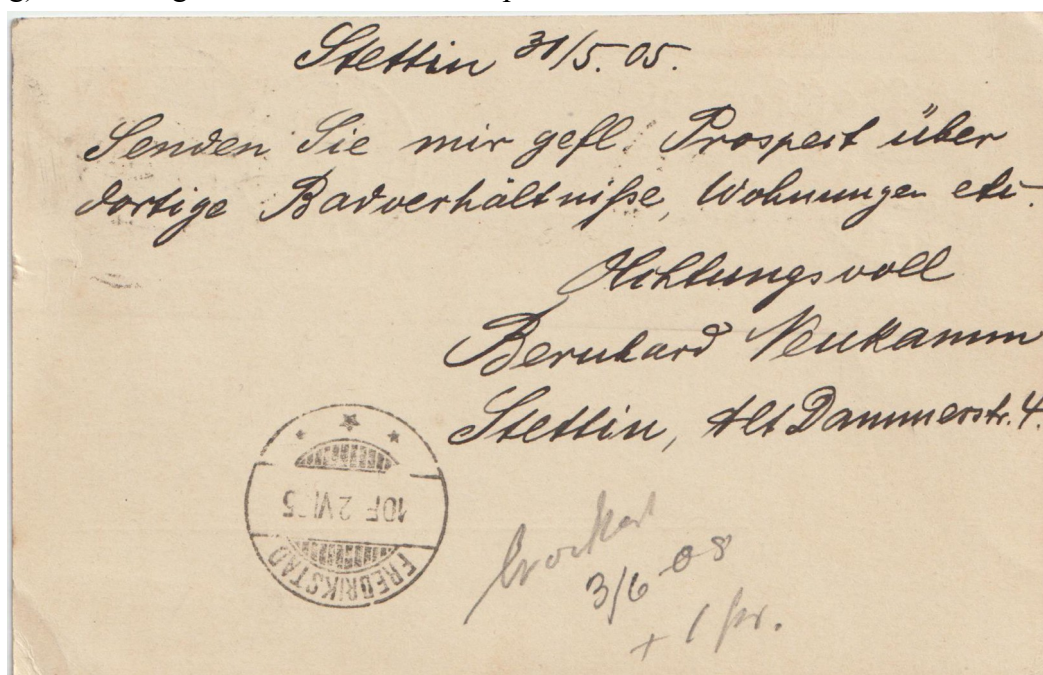 Stettin 31/5. 05.
Senden Sie mir gefl. Prospect über
dortige Badverhältniße, Wohnungen etc.
Achtungsvoll
Bernhard Neukamm
Stettin, Alt Dammerstr. 4.
10F 2 VI 5
FREDRIKSTAD
3/6-08
+ 1 pr.